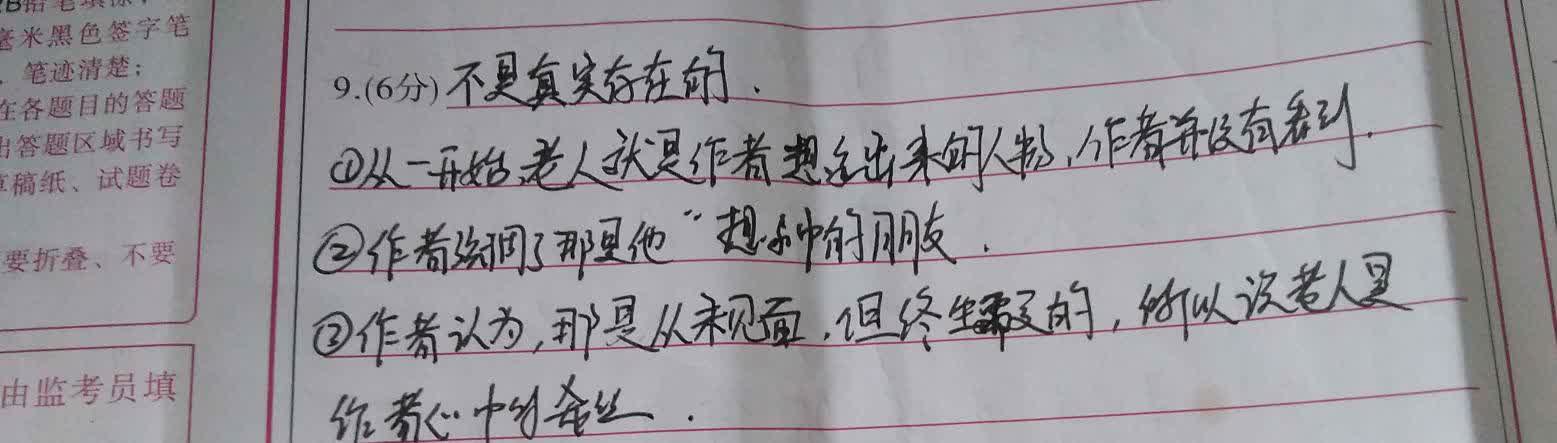 毫米黑色签字笔
、笔迹清楚；
在各题目的答题
出答题区域书写
草稿纸、试题卷
要折叠、不要
由监考员填
9.(6分)不是真实存在的.
①从一开始,老人就是作者想象出来的人物,作者并没有看到.
②作者强调了那是他“想象中的朋友.
③作者认为,那是从未见面,但终生的,所以说老人是
作者心中的